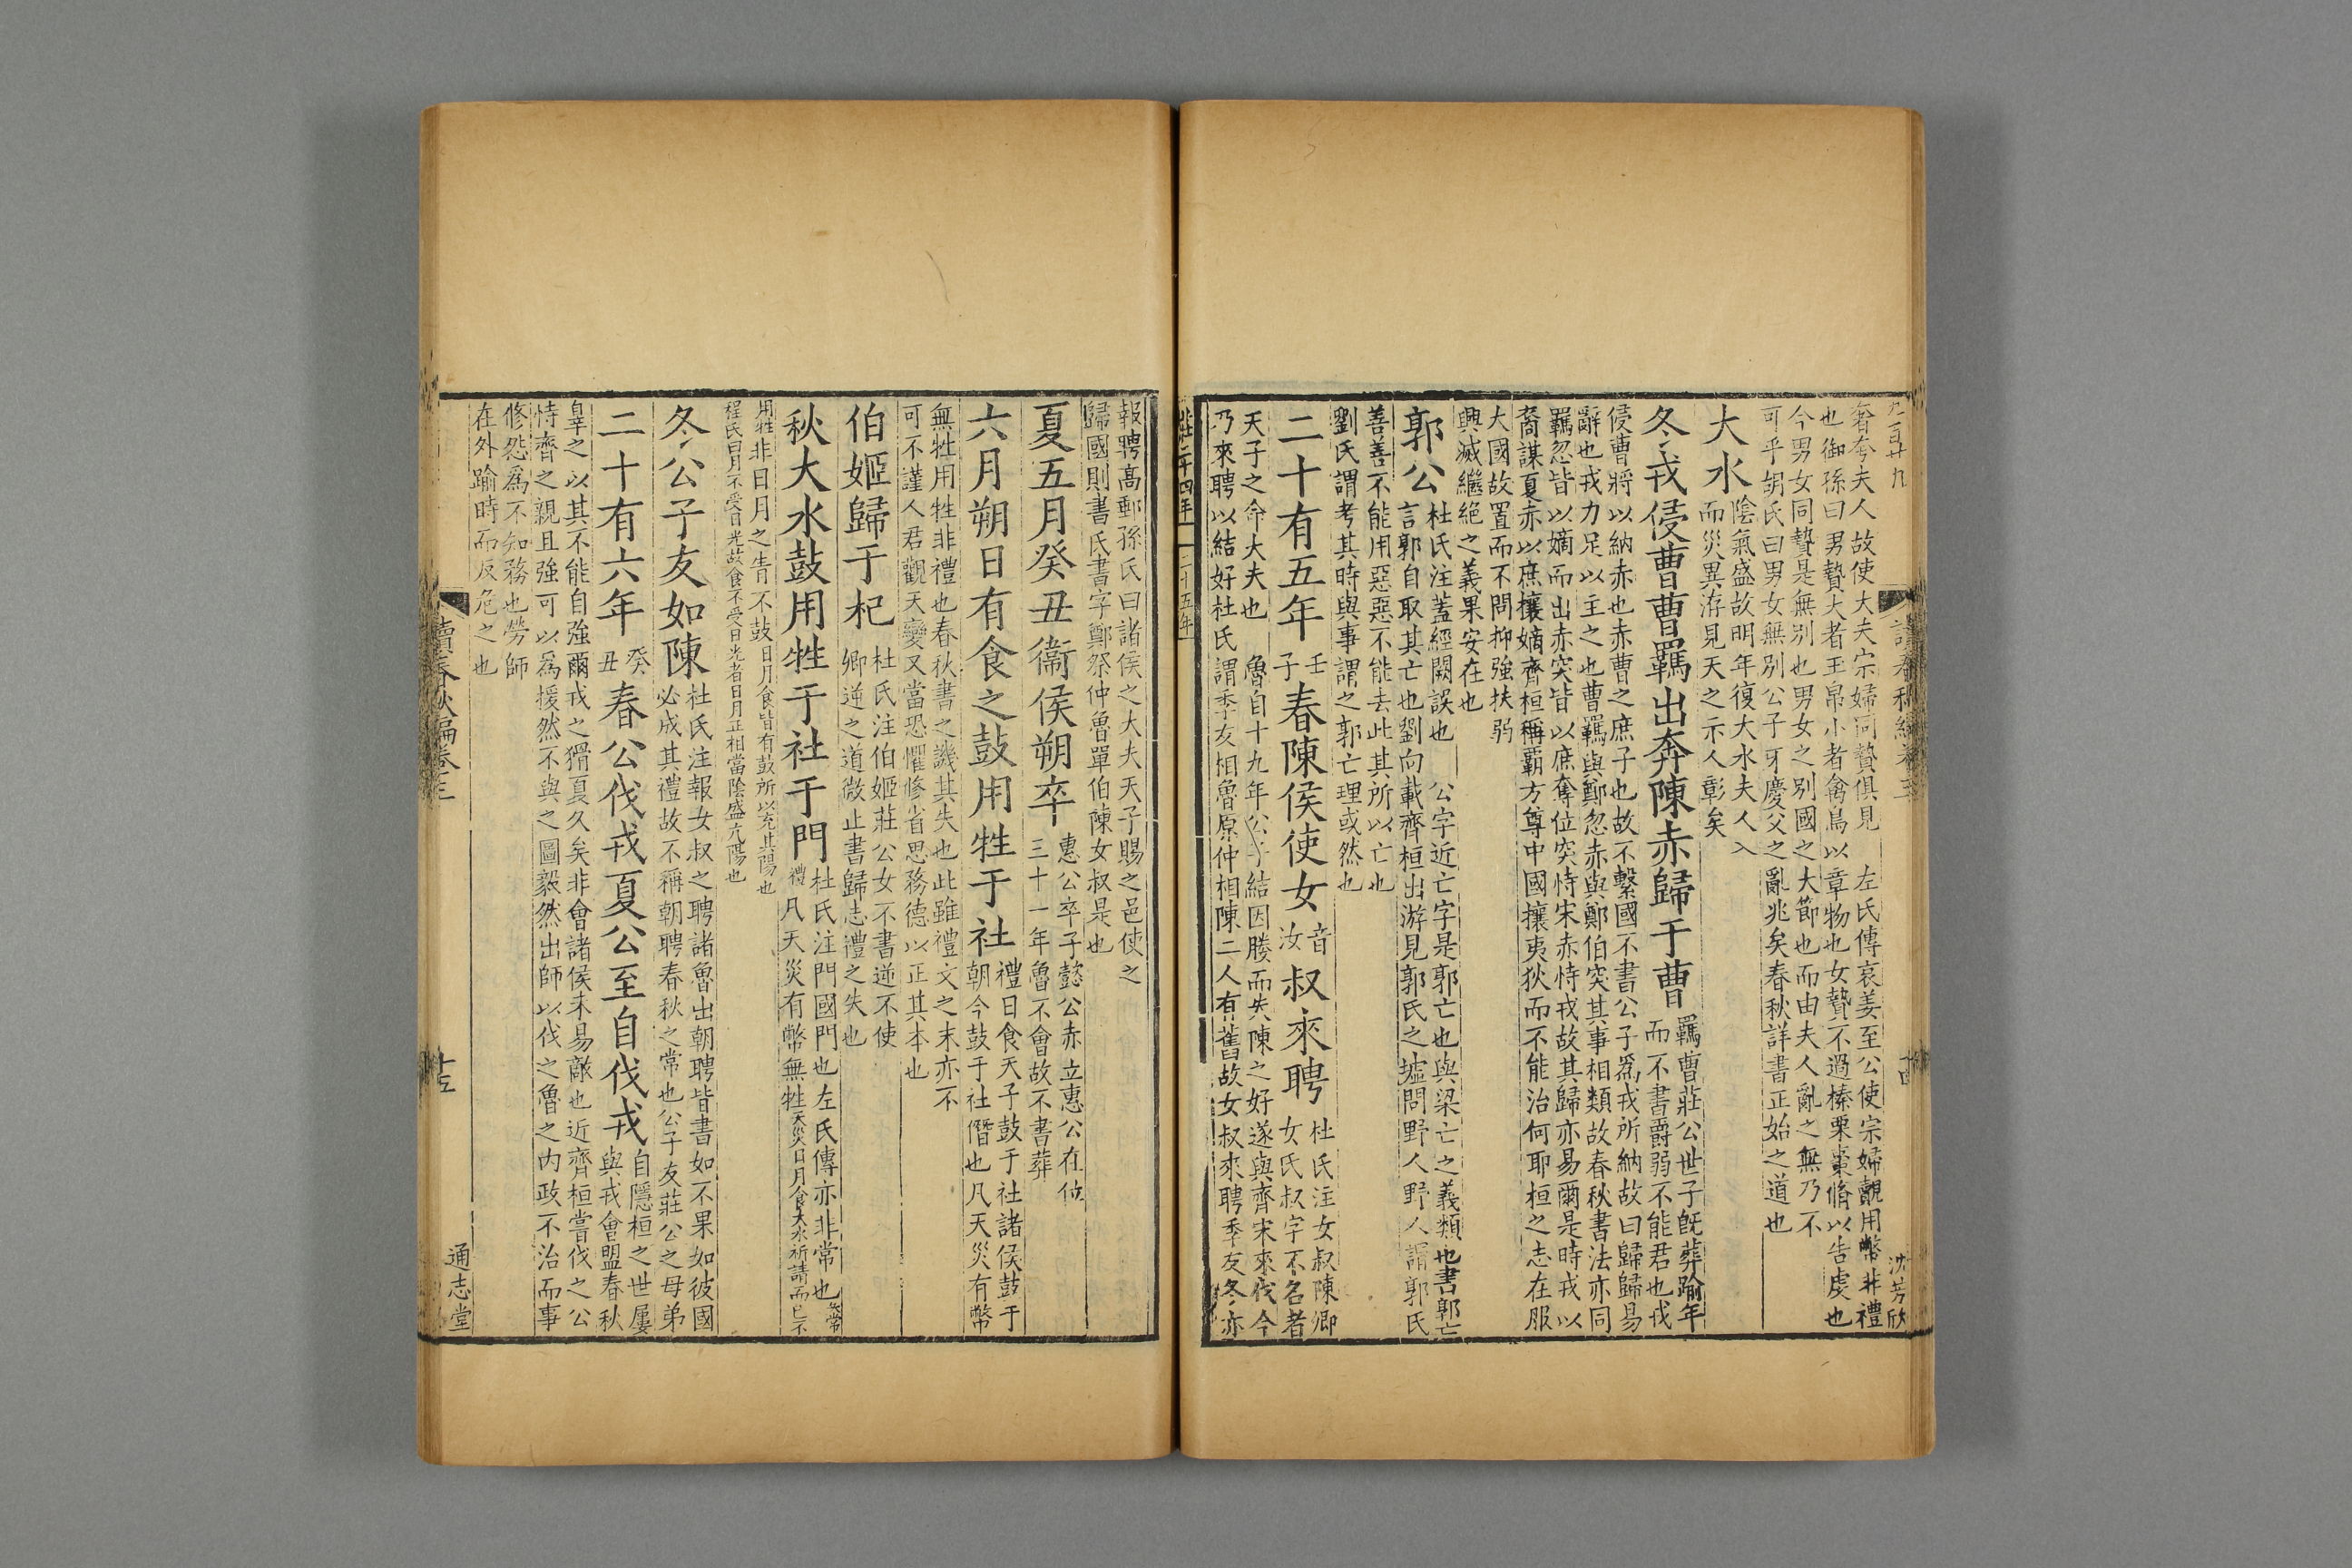 奢夸夫人故使大夫宗婦同贄俱見 左氏傳哀姜至公使宗婦覿用幣非禮
也御孫曰男贄大者玉帛小者禽鳥以章物也女贄不過榛栗棗脩以告虔也
今男女同贄是無別也男女之別國之大節也而由夫人亂之無乃不
可乎胡氏曰男女無別公子牙慶父之亂兆矣春秋詳書正始之道也
大水 陰氣盛故明年復大水夫人入
而災異洊見天之示人彰矣
冬戎侵曹曹羈出奔陳赤歸于曹 羈曹莊公世子旣葬踰年
而不書爵弱不能君也戎
侵曹將以納赤也赤曹之庶子也故不繫國不書公子爲戎所納故曰歸歸易
辭也戎力足以主之也曹羈與鄭忽赤與鄭伯突其事相類故春秋書法亦同
羈忽皆以嫡而出赤突皆以庶奪位突恃宋赤恃戎故其歸亦易爾是時戎以
裔謀夏赤以庶攘嫡齊桓稱霸方尊中國攘夷狄而不能治何耶桓之志在服
大國故置而不問抑強扶弱
興滅繼絕之義果安在也
郭公 杜氏注蓋經闕誤也 公字近亡字是郭亡也與梁亡之義類也書郭亡
言郭自取其亡也劉向載齊桓出游見郭氏之墟問野人野人謂郭氏
善善不能用惡惡不能去此其所以亡也
劉氏謂考其時與事謂之郭亡理或然也
二十有五年 壬子 春陳侯使女 音汝 叔來聘 杜氏注女叔陳卿
女氏叔字不名者
天子之命大夫也 魯自十九年公子結因媵而失陳之好遂與齊宋來伐今
乃來聘以結好杜氏謂季友相魯原仲相陳二人有舊故女叔來聘季友冬亦
莊二十四年 二十五年
報聘高郵孫氏曰諸侯之大夫天子賜之邑使之
歸國則書氏書字鄭祭仲魯單伯陳女叔是也
夏五月癸丑衞侯朔卒 惠公卒子懿公赤立惠公在位
三十一年魯不會故不書葬
六月朔日有食之鼓用牲于社 禮日食天子鼓于社諸侯鼓于
朝今鼓于社僭也凡天災有幣
無牲用牲非禮也春秋書之譏其失也此雖禮文之末亦不
可不謹人君觀天變又當恐懼修省思務德以正其本也
伯姬歸于杞 杜氏注伯姬莊公女不書逆不使
卿逆之道微止書歸志禮之失也
秋大水鼓用牲于社于門 杜氏注門國門也左氏傳亦非常也 失常
禮凡天災有幣無牲 天災日月食大水祈請而已不
用牲 非日月之眚不鼓 日月食皆有鼓所以充其陽也
程氏曰月不受日光故食不受日光者日月正相當陰盛亢陽也
冬公子友如陳 杜氏注報女叔之聘諸魯出朝聘皆書如不果如彼國
必成其禮故不稱朝聘春秋之常也公子友莊公之母弟
二十有六年 癸丑 春公伐戎夏公至自伐戎 自隱桓之世屢
與戎會盟春秋
辠之以其不能自強爾戎之猾夏久矣非會諸侯未易敵也近齊桓嘗伐之公
恃齊之親且強可以爲援然不與之圖毅然出師以伐之魯之內政不治而事
修怨爲不知務也勞師
在外踰時而反危之也
讀春秋編卷三 十五 通志堂